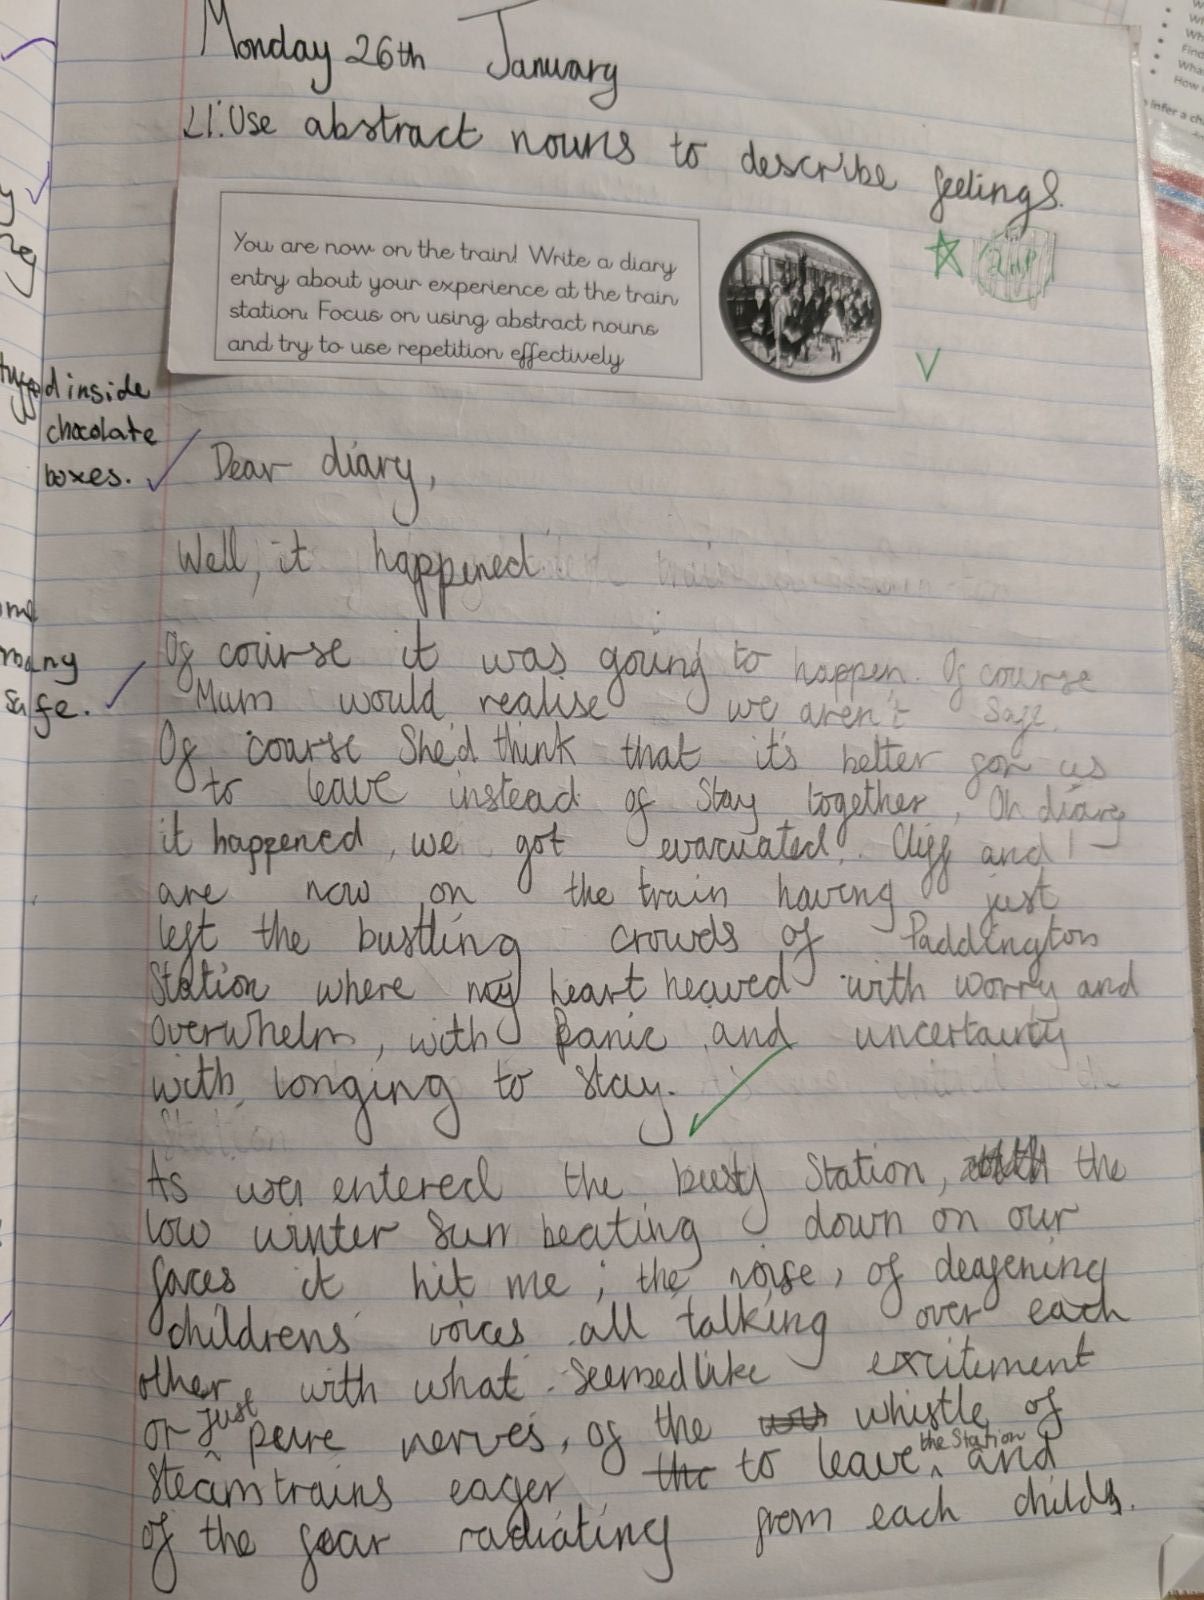 Monday 26th January
LI: Use abstract nouns to describe feelings.
You are now on the train! Write a diary
entry about your experience at the train
station. Focus on using abstract nouns
and try to use repetition effectively
inside
chocolate
boxes.
Dear diary,
Well, it happened.
many
safe.
Of course it was going to happen. Of course
Mum would realise we aren't safe.
Of course she'd think that it's better for us
to leave instead of stay together, Oh diary
it happened, we got evacuated. Cliff and I
are now on the train having just
left the bustling crowds of Paddington
Station where my heart heaved with worry and
overwhelm, with panic and uncertainty
with longing to stay.
Station
As we entered the busy Station, the
low winter sun beating down on our
faces it hit me; the noise, of deafening
childrens' voices all talking over each
other, with what seemed like excitement
or just pure nerves, of the whistle of
steam trains eager to leave the station and
of the fear radiating from each childs.